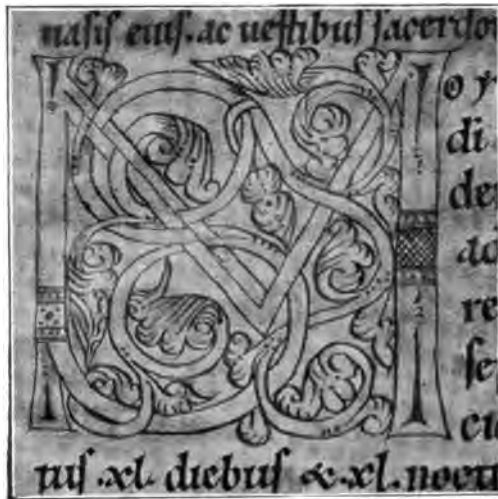 naſiſ eiuſ. ac ueſtibuſ ſacerdo
M oy
di
de
ad
re
ſe
tuſ .xl. diebuſ & .xl. noct